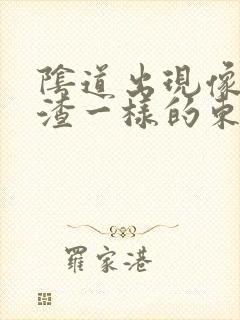 陰道出現像
渣一樣的東
羅家港